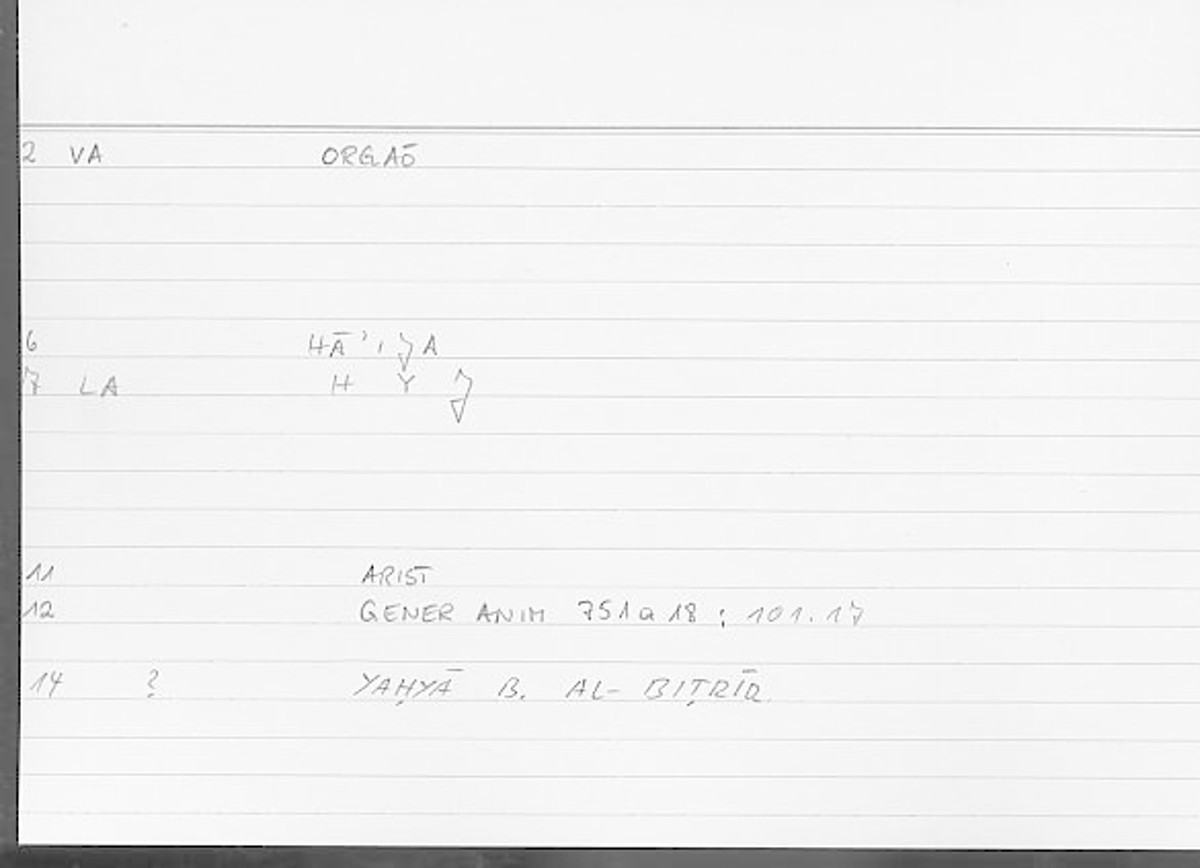 2 VA ORGAŌ
6 HĀ'IǦA
7 LA H Y Ǧ
11 ARIST
12 GENER ANIM 751a18; 101.17
14 ? YAḤYĀ B. AL-BIṬRĪQ